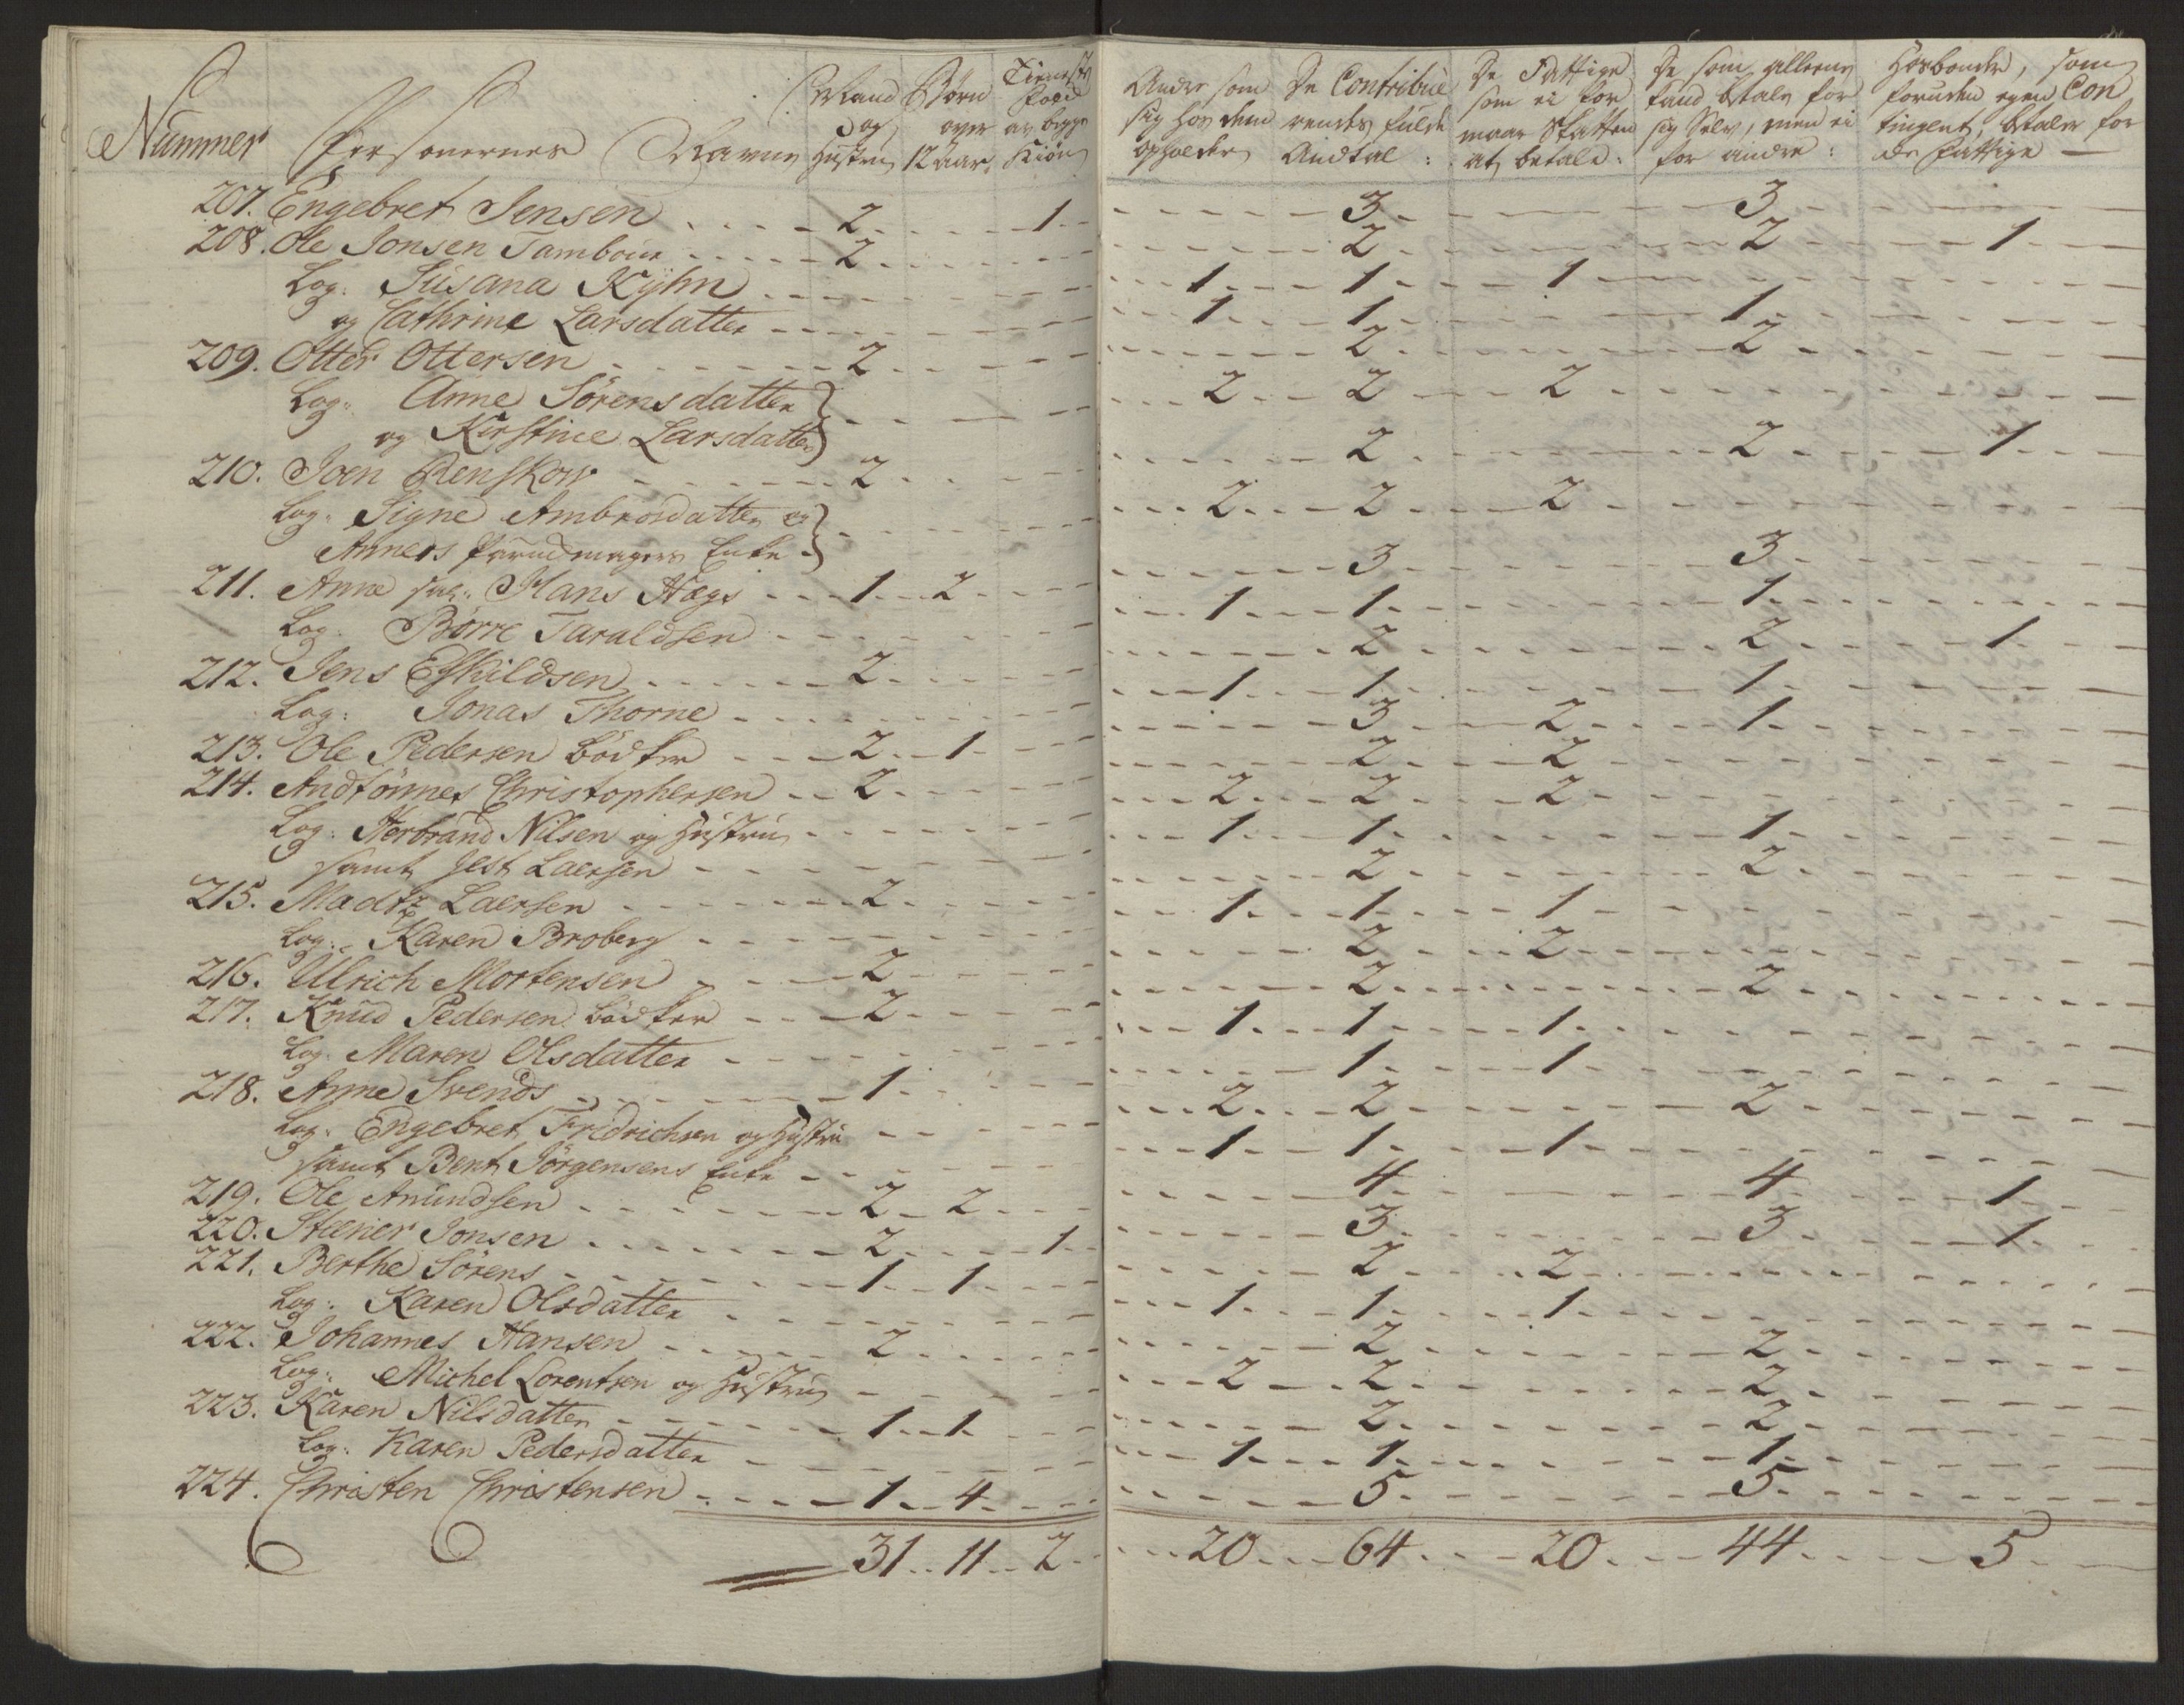 Nummer Personernes Navne Mand og Hustru Børn over 12 Aar. Tieneste Folk av begge Kiøn Andre som sig hos dem opholder De Contribuerendes fulde Andtal: De Fattige som ei formaar Skatten at betale: De som alleene kand betale for sig Selv, men ei for andre: Hosbonder, som foruden egen Contingent, betaler for de Fattige —
207. Engebret Jensen 2 1 3 3
208. Ole Jonsen Tambour 2 2 2 1
Log: Susana Kyhn 1 1 1
og Cathrine Larsdatter 1 1 1
209. Otter Ottersen 2 2 2
Log: Anne Sörensdatter
og Kirstine Larsdatter 2 2 2
210. Joen Renskow 2 2 2 1
Log: Signe Ambrosdatter og
Anners Enke 2 2 2
211. Anne Hans Hægs 1 2 3 3
Log: Börre Taraldsen 1 1 1
212. Jens Eskildsen 2 2 2 1
Log: Jonas Thorne 1 1 1
213. Ole Pedersen Bödker 2 1 3 2 1
214. Andtönnes Christophersen 2 2 2
Log: Herbrand Nilsen og Hustru 2 2 2
samt Jest Laersen 1 1 1
215. Madtz Laersen 2 2 2
Log: Karen Broberg 1 1 1
216. Ulrich Mortensen 2 2 2
217. Knud Pedersen Bödker 2 2 2
Log: Maren Olsdatter 1 1 1
218. Anne Svends 1 1 1
Log: Engebret Fridrichsen og Hustru 2 2 2
samt Bent Jörgensens Enke 1 1 1
219. Ole Amundsen 2 2 4 4 1
220. Stener Jonsen 2 1 3 3 1
221. Berthe Sörens 1 1 2 2
Log: Karen Olsdatter 1 1 1
222. Johannes Hansen 2 2 2
Log: Michel Lorentsen og Hustru 2 2 2
223. Karen Nilsdatter 1 1 2 2
Log: Karen Pedersdatter 1 1 1
224. Christen Christensen 1 4 5 5
31 11 2 20 64 20 44 5